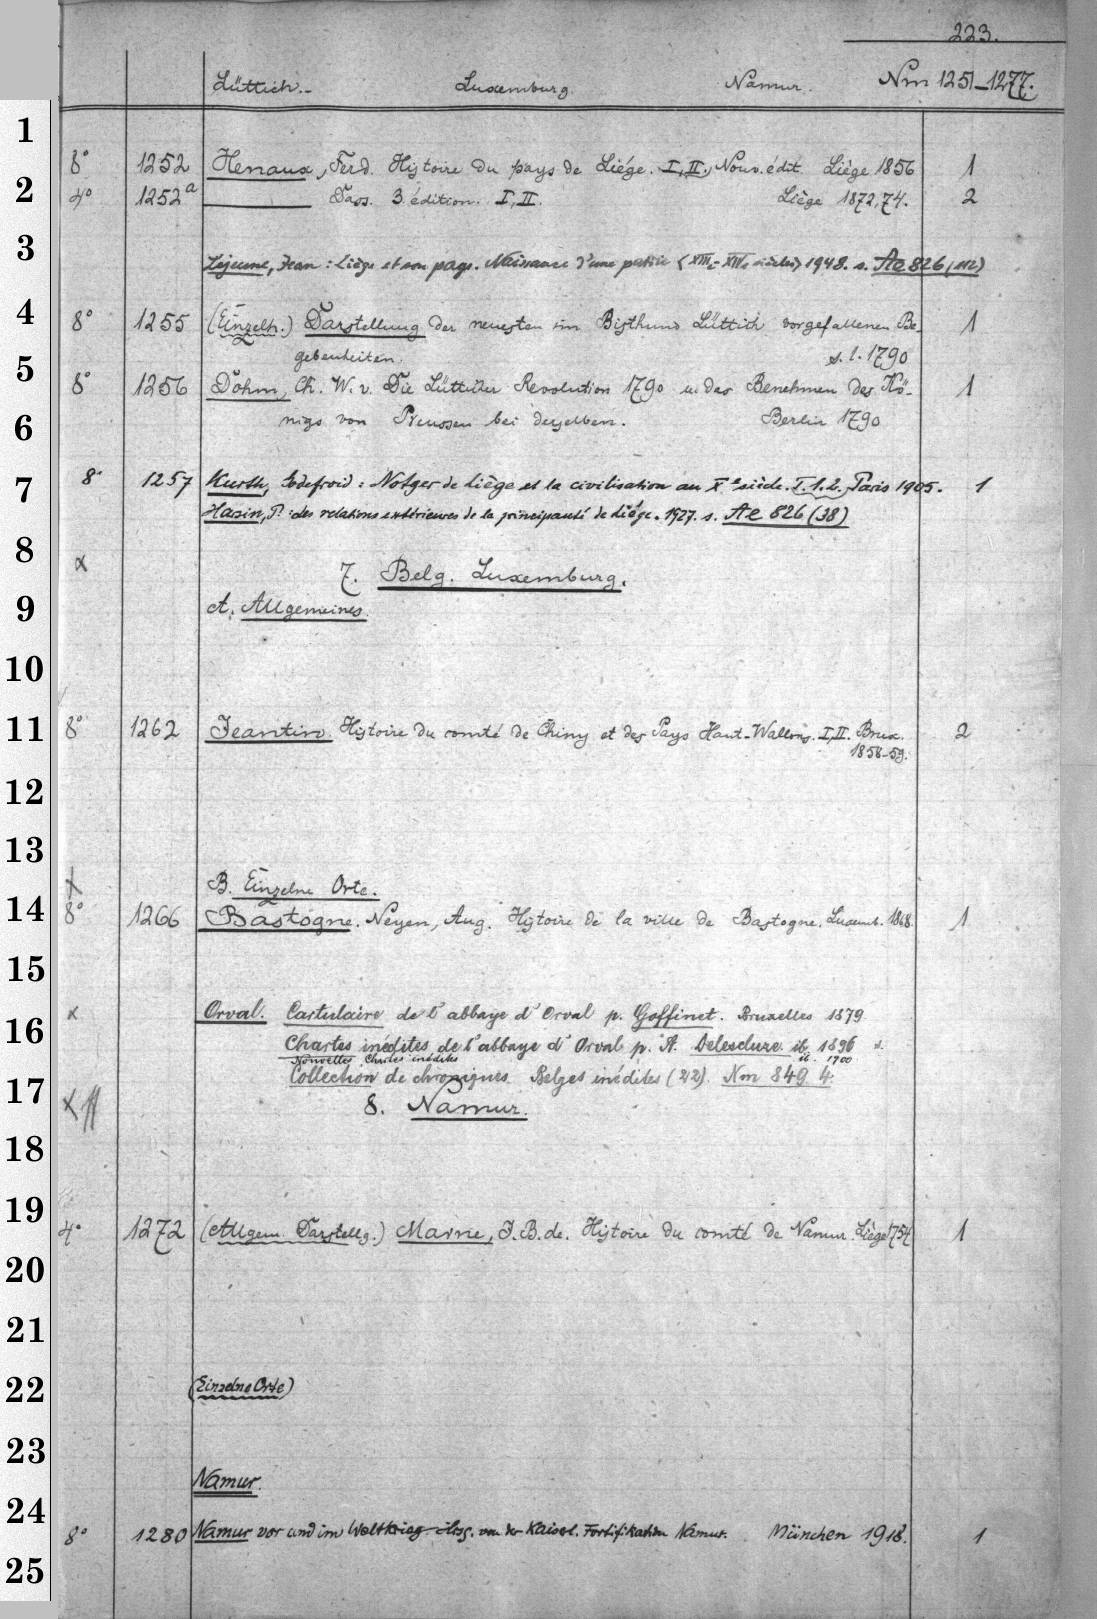 223.
Lüttich. Luxemburg. Namur. Nm 1251-1277.
1
8° 1252 Henaux, Ferd. Histoire du pays de Liége. I, II, Nouv. édit. Liège 1856 1
2 4° 1252a Dass. 3. édition. I, II. Liège 1872,74. 2
3 Lejeune, Jean: Liège et son pays. Naissance d'une patrie (XIIIe-XIVe siècles) 1948. s. Ae 826 (112)
4 8° 1255 (Einzelh.) Darstellung der neuesten im Bisthum Lüttich vorgefallenen Be-
gebenheiten. s. l. 1790 1
5 8° 1256 Dohm, Ch. W. v. Die Lütticher Revolution 1790 u. das Benehmen des Kö- 1
6 nigs von Preussen bei derselben. Berlin 1790
7 8° 1257 Kurth, Godefroid: Notger de Liège et la civilisation au Xe siècle. T. 1. 2. Paris 1905. 1
Harsin, P.: Les relations extérieures de la principauté de Liége. 1927. s. Ae 826 (38)
8 x 7. Belg. Luxemburg.
9 A. Allgemeines.
10
11 8° 1262 Jeantin Histoire du comté de Chiny et des Pays Haut-Wallons. I, II. Brux. 2
1858-59.
12
13
x B. Einzelne Orte.
14 8° 1266 Bastogne. Neyen, Aug. Histoire de la ville de Bastogne. Luxemb. 1868. 1
15
x Orval. Cartulaire de l'abbaye d'Orval p. Goffinet. Bruxelles 1879
16 Chartes inédites de l'abbaye d'Orval p. A. Delescluze ib. 1896
Nouvelles Chartes inédites ib. 1900
Collection de chroniques Belges inédites (22). Nm 849 4.
17 x 8. Namur.
18
19 4° 1272 (Allgem. Darstellg.) Marne, J. B. de. Histoire du comté de Namur. Liège 1754 1
20
21
22 (Einzelne Orte)
23
Namur.
24
8° 1280 Namur vor und im Weltkrieg hrsg. von der Kaiserl. Fortifikation Namur. München 1918. 1
25